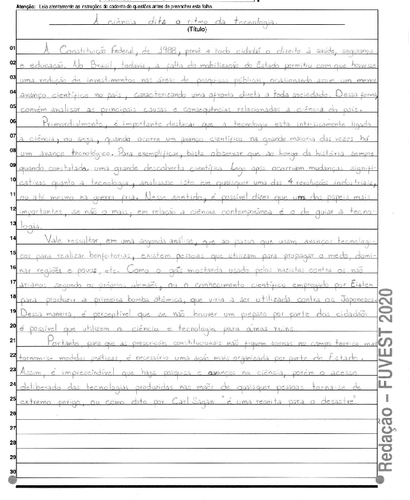 Atenção: Leia atentamente as instruções do caderno de questões antes de preencher esta folha.
A ciência dita o ritmo da tecnologia.
(Título)
01 A Constituição Federal, de 1988, prevê a todo cidadão o direito à saúde, segurança
02 e educação. No Brasil, todavia, a falta de mobilização do Estado permitiu com que houvesse
03 uma redução de investimentos nas áreas de pesquisas públicas, ocasionando assim um menor
04 avanço científico no país, caracterizando uma afronta direta a toda sociedade. Dessa forma,
05 convém analisar as principais causas e consequências relacionadas a ciência do país.
06 Primordialmente, é importante destacar que a tecnologia está intrinsicamente ligada
07 a ciência, ou seja, quando ocorre um avanço científico na grande maioria das vezes há
08 um avanço tecnológico. Para exemplificar, basta observar que ao longo da história sempre
09 quando constatada uma grande descoberta científica logo após ocorriam mudanças signifi-
10 cativas quanto a tecnologia, analisase isto em quaisquer uma das 4 revoluções industriais,
11 ou até mesmo na guerra fria. Nesse sentido, é possível dizer que um dos papeis mais
12 importantes, se não o mais, em relação a ciência contemporânea é o de guiar a tecno-
13 logia.
14 Vale ressaltar, em uma segunda análise, que ao passo que usam avanços tecnológi-
15 cos para realizar benfeitorias, existem pessoas que utilizam para propagar o medo, domi-
16 nar regiões e povos, etc. Como o gás mostarda usado pelos nazistas contra os não
17 arianos segundo os próprios alemães, ou o conhecimento científico empregado por Eisten
18 para produzir a primeira bomba atômica, que viria a ser utilizada contra os Japoneses.
19 Dessa maneira, é perceptível que se não houver um preparo por parte dos cidadãos
20 é possível que utilizem a ciência e tecnologia para coisas ruins.
21 Portanto, para que as prescrições constitucionais não fiquem somente no campo teórico mas
22 tornem-se medidas práticas, é necessário uma ação mais organizada por parte do Estado.
23 Assim, é imprescindível que haja pesquisa e avanços na ciência, porém o acesso
24 deliberado das tecnologias produzidas nas mãos de quaisquer pessoas torna-se de
25 extremo perigo, ou como dito por Carl Sagan "é uma receita para o desastre"
26
27
28
29
30
Redação – FUVEST 2020